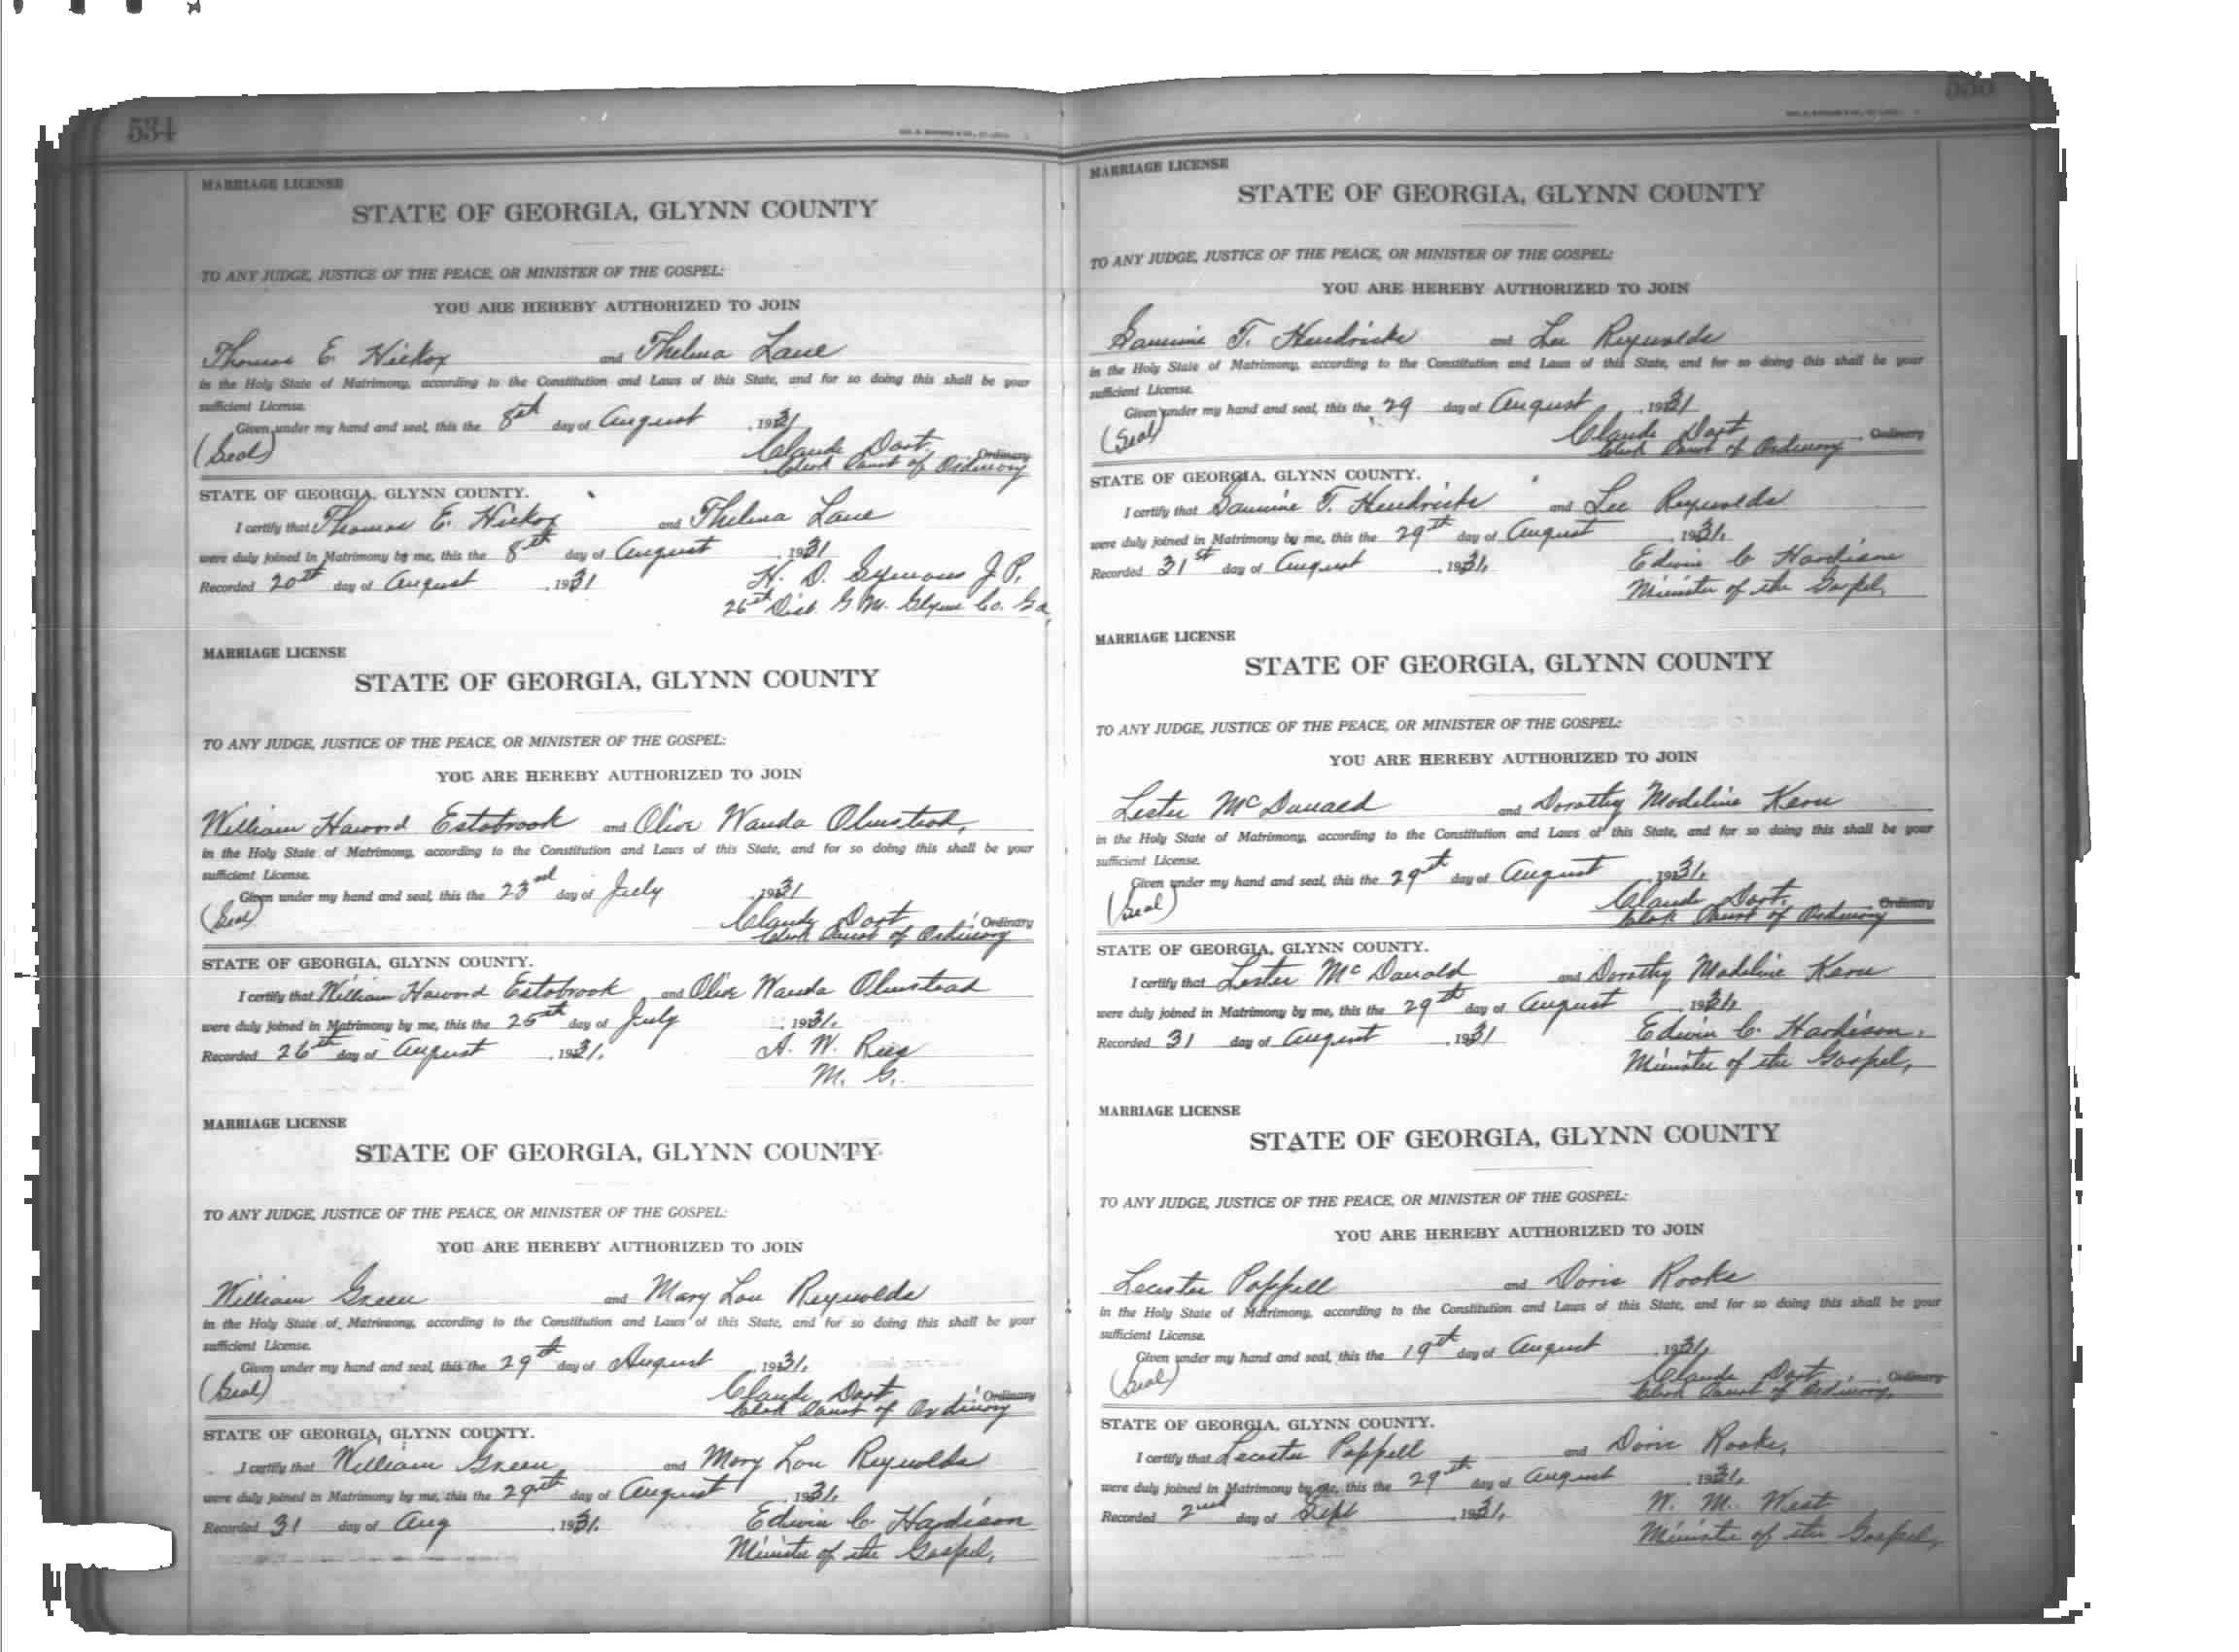 534
MARRIAGE LICENSE
STATE OF GEORGIA, GLYNN COUNTY
TO ANY JUDGE, JUSTICE OF THE PEACE, OR MINISTER OF THE GOSPEL:
YOU ARE HEREBY AUTHORIZED TO JOIN
Thomas E. Hickox and Thelma Lane
in the Holy State of Matrimony, according to the Constitution and Laws of this State, and for so doing this shall be your
sufficient License.
Given under my hand and seal, this the 8th day of August, 1931
(Seal) Claude Dart Ordinary
Clerk Court of Ordinary
STATE OF GEORGIA, GLYNN COUNTY.
I certify that Thomas E. Hickox and Thelma Lane
were duly joined in Matrimony by me, this the 8th day of August, 1931
Recorded 20th day of August, 1931 H. D. Symons J. P.
26st Dist. G. M. Glynn Co. Ga.
MARRIAGE LICENSE
STATE OF GEORGIA, GLYNN COUNTY
TO ANY JUDGE, JUSTICE OF THE PEACE, OR MINISTER OF THE GOSPEL:
YOU ARE HEREBY AUTHORIZED TO JOIN
William Haword Estabrook and Olive Wanda Olmstead,
in the Holy State of Matrimony, according to the Constitution and Laws of this State, and for so doing this shall be your
sufficient License.
Given under my hand and seal, this the 23rd day of July, 1931
(Seal) Claude Dart, Ordinary
Clerk Court of Ordinary
STATE OF GEORGIA, GLYNN COUNTY.
I certify that William Haword Estabrook and Olive Wanda Olmstead
were duly joined in Matrimony by me, this the 25th day of July, 1931.
Recorded 26th day of August, 1931. A. W. Rees
M. G.
MARRIAGE LICENSE
STATE OF GEORGIA, GLYNN COUNTY
TO ANY JUDGE, JUSTICE OF THE PEACE, OR MINISTER OF THE GOSPEL:
YOU ARE HEREBY AUTHORIZED TO JOIN
William Green and Mary Lou Reynolds
in the Holy State of Matrimony, according to the Constitution and Laws of this State, and for so doing this shall be your
sufficient License.
Given under my hand and seal, this the 29th day of August, 1931.
(Seal) Claude Dart, Ordinary
Clerk Court of Ordinary
STATE OF GEORGIA, GLYNN COUNTY.
I certify that William Green and Mary Lou Reynolds
were duly joined in Matrimony by me, this the 29th day of August, 1931.
Recorded 31 day of Aug, 1931. Edwin C. Hardison
Minister of the Gospel,
MARRIAGE LICENSE
STATE OF GEORGIA, GLYNN COUNTY
TO ANY JUDGE, JUSTICE OF THE PEACE, OR MINISTER OF THE GOSPEL:
YOU ARE HEREBY AUTHORIZED TO JOIN
Sammie T. Hendricks and Lee Reynolds
in the Holy State of Matrimony, according to the Constitution and Laws of this State, and for so doing this shall be your
sufficient License.
Given under my hand and seal, this the 29 day of August, 1931
(Seal) Claude Dart, Ordinary
Clerk Court of Ordinary
STATE OF GEORGIA, GLYNN COUNTY.
I certify that Sammie T. Hendricks and Lee Reynolds
were duly joined in Matrimony by me, this the 29th day of August, 1931.
Recorded 31st day of August, 1931. Edwin C Hardison
Minister of the Gospel,
MARRIAGE LICENSE
STATE OF GEORGIA, GLYNN COUNTY
TO ANY JUDGE, JUSTICE OF THE PEACE, OR MINISTER OF THE GOSPEL:
YOU ARE HEREBY AUTHORIZED TO JOIN
Lester McDanald and Dorathy Madeline Kern
in the Holy State of Matrimony, according to the Constitution and Laws of this State, and for so doing this shall be your
sufficient License.
Given under my hand and seal, this the 29th day of August, 1931.
(Seal) Claude Dart, Ordinary
Clerk Court of Ordinary
STATE OF GEORGIA, GLYNN COUNTY.
I certify that Lester McDanald and Dorathy Madeline Kern
were duly joined in Matrimony by me, this the 29th day of August, 1931.
Recorded 31 day of August, 1931 Edwin C. Hardison.
Minister of the Gospel,
MARRIAGE LICENSE
STATE OF GEORGIA, GLYNN COUNTY
TO ANY JUDGE, JUSTICE OF THE PEACE, OR MINISTER OF THE GOSPEL:
YOU ARE HEREBY AUTHORIZED TO JOIN
Lecester Poppell and Doris Rooks
in the Holy State of Matrimony, according to the Constitution and Laws of this State, and for so doing this shall be your
sufficient License.
Given under my hand and seal, this the 19th day of August, 1931.
(Seal) Claude Dart, Ordinary
Clerk Court of Ordinary,
STATE OF GEORGIA, GLYNN COUNTY.
I certify that Lecester Poppell and Doris Rooks,
were duly joined in Matrimony by me, this the 29th day of August, 1931.
Recorded 2nd day of Sept, 1931. W. M. West
Minister of the Gospel,